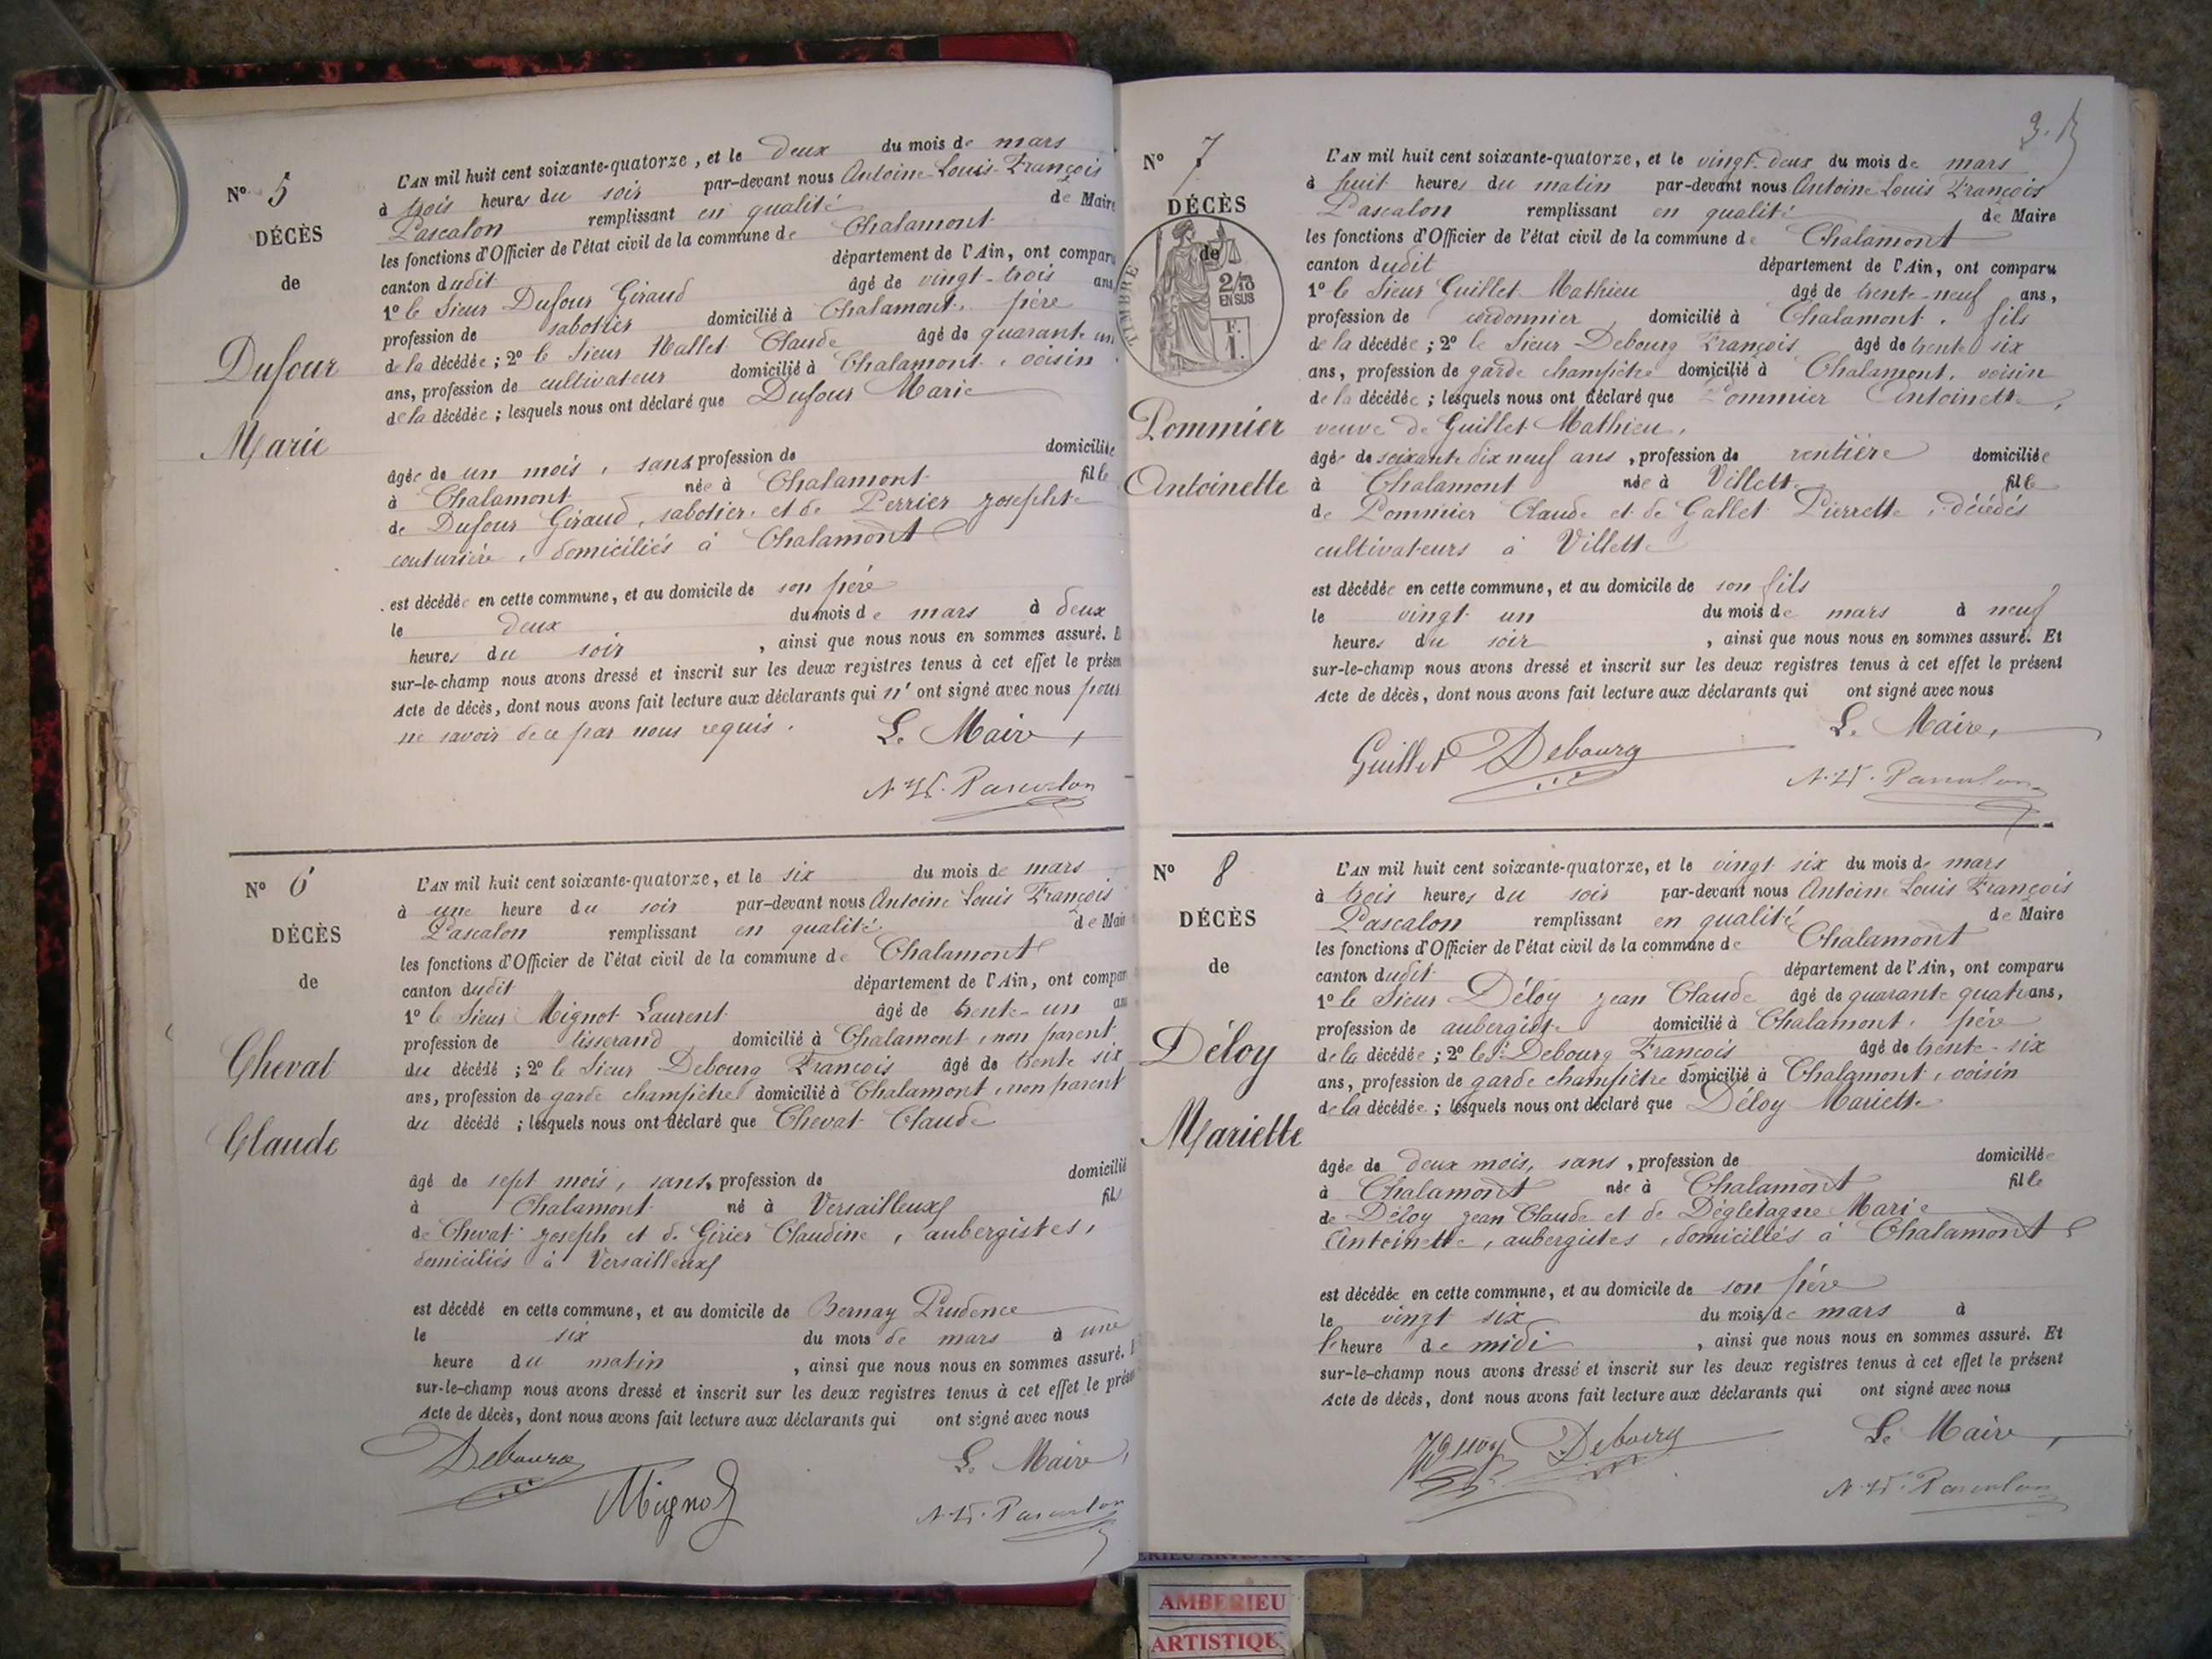 Nº 5
DÉCÈS
de
Dufour
Marie
L'AN mil huit cent soixante-quatorze, et le deux du mois de mars
à trois heures du soir par-devant nous Antoine Louis François
Pascalon remplissant en qualité de Maire
les fonctions d'Officier de l'état civil de la commune de Chalamont
canton dudit département de l'Ain, ont comparu
1º le Sieur Dufour Giraud âgé de vingt-trois ans
profession de sabotier domicilié à Chalamont, père
de la décédée ; 2º le Sieur Mallet Claude âgé de quarante un
ans, profession de cultivateur domicilié à Chalamont, voisin
de la décédée ; lesquels nous ont déclaré que Dufour Marie
âgée de un mois, sans profession de domiciliée
à Chalamont née à Chalamont fille
de Dufour Giraud, sabotier et de Perrier Josephte
couturière, domiciliés à Chalamont
est décédée en cette commune, et au domicile de son père
le deux du mois de mars à deux
heures du soir , ainsi que nous nous en sommes assuré. E
sur-le-champ nous avons dressé et inscrit sur les deux registres tenus à cet effet le présen
Acte de décès, dont nous avons fait lecture aux déclarants qui n' ont signé avec nous pour
ne savoir de ce par nous requis. Le Maire,
Pascalon
Nº 6
DÉCÈS
de
Chevat
Claude
L'AN mil huit cent soixante-quatorze, et le six du mois de mars
à une heure du soir par-devant nous Antoine Louis François
Pascalon remplissant en qualité de Mair
les fonctions d'Officier de l'état civil de la commune de Chalamont
canton dudit département de l'Ain, ont compar
1º le Sieur Mignot Laurent âgé de trente-un ans
profession de tisserand domicilié à Chalamont, non parent
du décédé ; 2º le Sieur Debourg François âgé de trente six
ans, profession de garde champêtre domicilié à Chalamont, non parent
du décédé ; lesquels nous ont déclaré que Chevat Claude
âgé de sept mois, sans, profession de domicilié
à Chalamont né à Versailleux fils
de Chevat Joseph et de Girier Claudine, aubergistes,
domiciliés à Versailleux
est décédé en cette commune, et au domicile de Bernay Prudence
le six du mois de mars à une
heure du matin , ainsi que nous nous en sommes assuré. E
sur-le-champ nous avons dressé et inscrit sur les deux registres tenus à cet effet le prése
Acte de décès, dont nous avons fait lecture aux déclarants qui ont signé avec nous
Debourg Mignot Le Maire,
Pascalon
3.
Nº 7
DÉCÈS
de
TIMBRE
2/10
EN SUS
F.
1.
Pommier
Antoinette
L'AN mil huit cent soixante-quatorze, et le vingt-deux du mois de mars
à huit heures du matin par-devant nous Antoine Louis François
Pascalon remplissant en qualité de Maire
les fonctions d'Officier de l'état civil de la commune de Chalamont
canton dudit département de l'Ain, ont comparu
1º le Sieur Guillet Mathieu âgé de trente-neuf ans,
profession de cordonnier domicilié à Chalamont, fils
de la décédée ; 2º le Sieur Debourg François âgé de trente six
ans, profession de garde champêtre domicilié à Chalamont, voisin
de la décédée ; lesquels nous ont déclaré que Pommier Antoinette,
veuve de Guillet Mathieu,
âgée de soixante dix neuf ans , profession de rentière domiciliée
à Chalamont née à Villette fille
de Pommier Claude et de Gallet Pierrette, décédés
cultivateurs à Villette
est décédée en cette commune, et au domicile de son fils
le vingt un du mois de mars à neuf
heures du soir , ainsi que nous nous en sommes assuré. Et
sur-le-champ nous avons dressé et inscrit sur les deux registres tenus à cet effet le présent
Acte de décès, dont nous avons fait lecture aux déclarants qui ont signé avec nous
Guillet Debourg Le Maire,
Pascalon
Nº 8
DÉCÈS
de
Déloy
Mariette
L'AN mil huit cent soixante-quatorze, et le vingt six du mois de mars
à trois heures du soir par-devant nous Antoine Louis François
Pascalon remplissant en qualité de Maire
les fonctions d'Officier de l'état civil de la commune de Chalamont
canton dudit département de l'Ain, ont comparu
1º le Sieur Déloy Jean Claude âgé de quarante quatre ans,
profession de aubergiste domicilié à Chalamont, père
de la décédée ; 2º le Sr Debourg François âgé de trente-six
ans, profession de garde champêtre domicilié à Chalamont, voisin
de la décédée ; lesquels nous ont déclaré que Déloy Mariette
âgée de deux mois, sans , profession de domiciliée
à Chalamont née à Chalamont fille
de Déloy Jean Claude et de Dégletagne Marie
Antoinette, aubergistes, domiciliés à Chalamont
est décédée en cette commune, et au domicile de son père
le vingt six du mois de mars à
l'heure de midi , ainsi que nous nous en sommes assuré. Et
sur-le-champ nous avons dressé et inscrit sur les deux registres tenus à cet effet le présent
Acte de décès, dont nous avons fait lecture aux déclarants qui ont signé avec nous
Debourg Le Maire,
Pascalon
AMBERIEU
ARTISTIQU